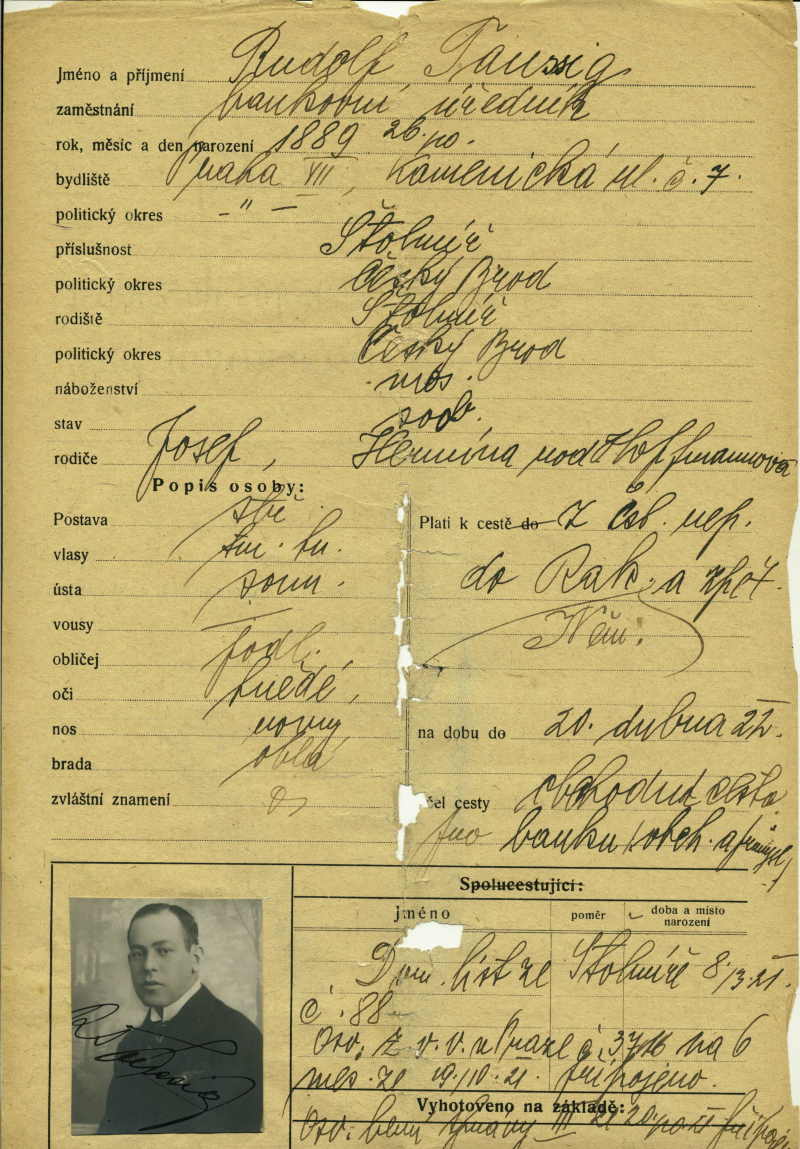 Jméno a příjmení Rudolf Taussig
zaměstnání bankovní úředník
rok, měsíc a den narození 1889 26.10.
bydliště Praha VII, Kamenická ul. č. 7.
politický okres -"-
příslušnost Štolmíř
politický okres Český Brod
rodiště Štolmíř
politický okres Český Brod
náboženství mos.
stav svob.
rodiče Josef, Hermína rod. Hoffmannová
Popis osoby:
Postava stř.
vlasy tm. hn.
ústa soum.
vousy —
obličej podl.
oči hnědé,
nos rovný
brada oblá
zvláštní znamení
Platí k cestě do z čsl. rep.
do Rak. a zpět.
Něm.
na dobu do 20. dubna 22.
čel cesty obchodní cesta
pro banku obch. a průmysl
Spolucestující:
jméno poměr doba a místo narození
Dom. list ze Štolmíře 8./3. 21.
č. 88
Osv. z. v. v. v Praze č. 3716 na 6
měs. ze 19./10. 21. připojeno.
Vyhotoveno na základě:
Osv. bern. správy III ze 20.